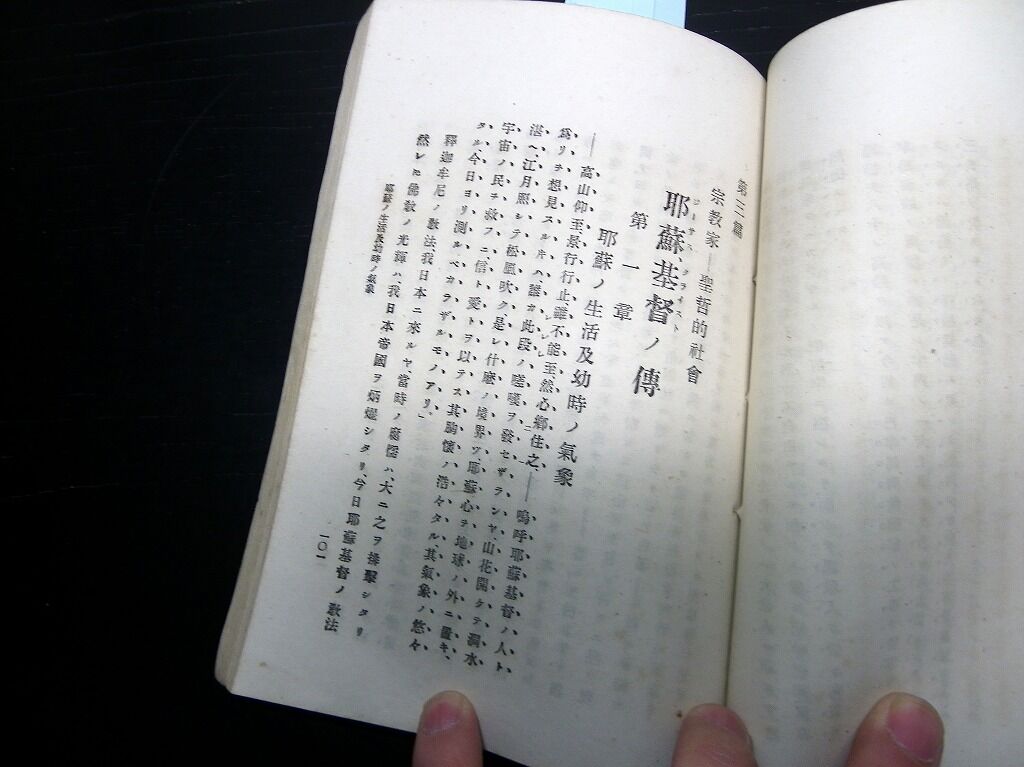 第三篇
宗教家―聖哲的社會
耶蘇基督ノ傳
ジーサス、クライスト
第一章
耶蘇ノ生活及幼時ノ氣象
――高山仰至、景行行止、誰不能至、然心鄉住之、――嗚呼耶蘇基督ノ人ト
爲リヲ想見スル片ハ、誰カ此段ノ嗟嘆ヲ發セザランヤ、山花開ケテ澗水
湛ヘ、江月照シテ松風吹ク、是レ什麽ノ境界ヅ、耶蘇心ヲ地球ノ外ニ置キ、
宇宙ノ民ヲ救フニ、信ト愛トヲ以テス、其胸懷ハ浩々タル、其氣象ノ悠々
タル、今日ヨリ測ルベカラザルモノアリ、」
釋迦牟尼ノ敎法、我日本ニ來ルヤ、當時ノ腐儒ハ、大ニ之ヲ排擊シタリ
然レ𪜈佛敎ノ光輝ハ、我日本帝國ヲ炳燿シタリ、今日耶蘇基督ノ敎法
耶蘇ノ生活及幼時ノ氣象
一〇一